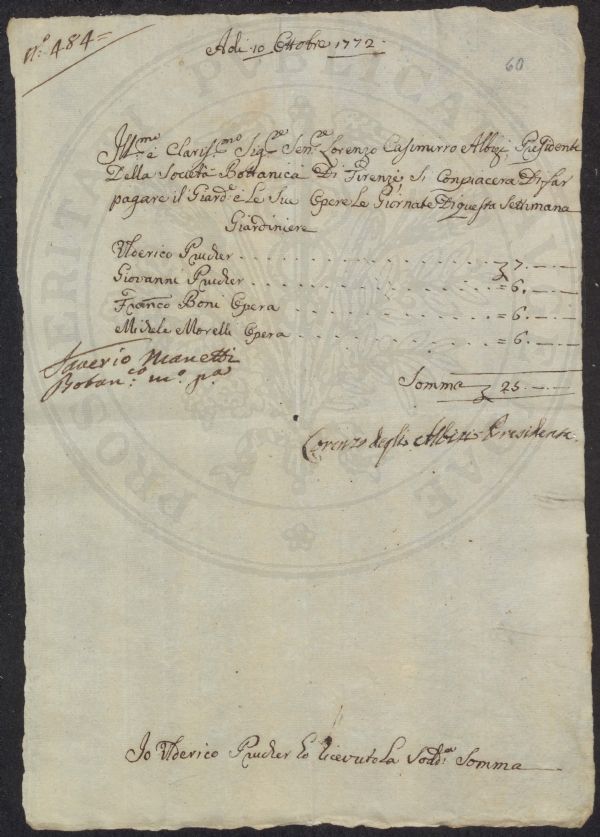 n.º 484=
Adi 10 Ottobre 1772.
60
Ill.mo e Claris.mo Sig.re Sen.re Lorenzo Casimirro Albizi, Presidente
Della Società Bottanica Di Firenze, Si Conpiacera Di far
pagare il Giard.e e Le Sue Opere Le Giornate Di questa Settimana
Giardiniere
Ulderico Prucher . . . . . . . . . . 7.—.—
Giovanni Prucher . . . . . . . . . . = 6.—.—
Franco Boni Opera . . . . . . . . = 6.—.—
Michele Morelli Opera . . . . . . . = 6.—.—
Saverio Manetti
Botan.co m.o p.a
Somma 25.—.—
Lorenzo degli Albizi Presidente.
Io Ulderico Prucher ho ricevuto La Sodd.a Somma
PROSPERITATI PUBLICAE